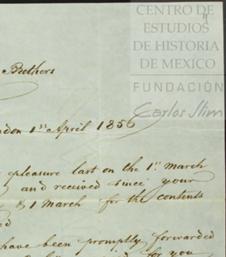 CENTRO DE
ESTUDIOS
DE HISTORIA
DE MÉXICO
FUNDACIÓN
Carlos Slim
Brothers
London 1st April 1856
pleasure last on the 1st March
and received since your
& 1 March for the contents
have been promptly forwarded
for you